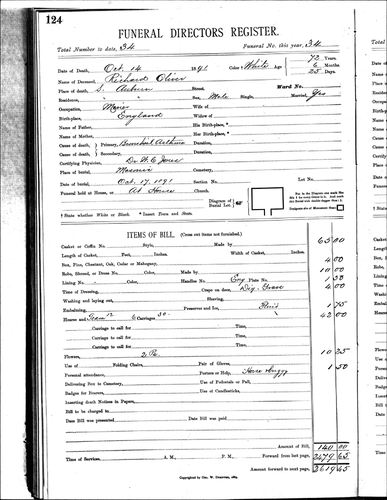 124
FUNERAL DIRECTORS REGISTER.
Total Number to date, 34 Funeral No. this year, 34
Date of Death, Oct. 14 1891 Color † White Age 73 Years.
6 Months
25 Days.
Name of Deceased, Richard Oliver
Place of death, S. Auburn Street, Ward No.
Residence, " Sex, Male Single, Married, Yes
Occupation, Wife of
Birth-place, England Widow of
Name of Father, His Birth-place, *
Name of Mother, Her Birth-place, *
Cause of death, Primary, Bronchial Asthma Duration,
Cause of death, Secondary, Duration,
Certifying Physician, Dr. W. C. Jones
Place of burial, Masonic Cemetery,
Date of burial, Oct. 17. 1891 Section No.
Funeral held at House, or At House Church.
Diagram of Burial Lot.
† State whether White or Black. * Insert Town and State.
ITEMS OF BILL. (Cross out items not furnished.)
Casket or Coffin No. Style, Made by 65 00
Length of Casket, Feet, Inches. Width of Casket, Inches.
Box, Pine, Chestnut, Oak, Cedar or Mahogany, 4 00
Robe, Shroud, or Dress No. Color, Made by 10 00
Lining No. Color, Handles No. Eng Plate No. 1 50
Time of Dressing, Crape on door, Dig. Grave 4 00
Washing and laying out, Shaving,
Embalming, Preserver and Ice, Fluid 1 75
Hearse and 6 Carriages 30- 42 00
Carriage to call for Time,
Carriage to call for Time,
Carriage to call for Time,
Carriage to call for Time,
Flowers, 10 25
Use of Folding Chairs, Pair of Gloves,
Personal attendance, Porters or Help, Horse Buggy 1 50
Delivering Box to Cemetery, Use of Pedestals or Pall,
Badges for Bearers, Use of Candlesticks,
Inserting death Notices in Papers,
Bill to be charged to
Date Bill was presented Date Bill paid
Amount of Bill, 140 00
Time of Service, A. M., P. M., Forward from last page, 2479 65
Amount forward to next page, 2619 65